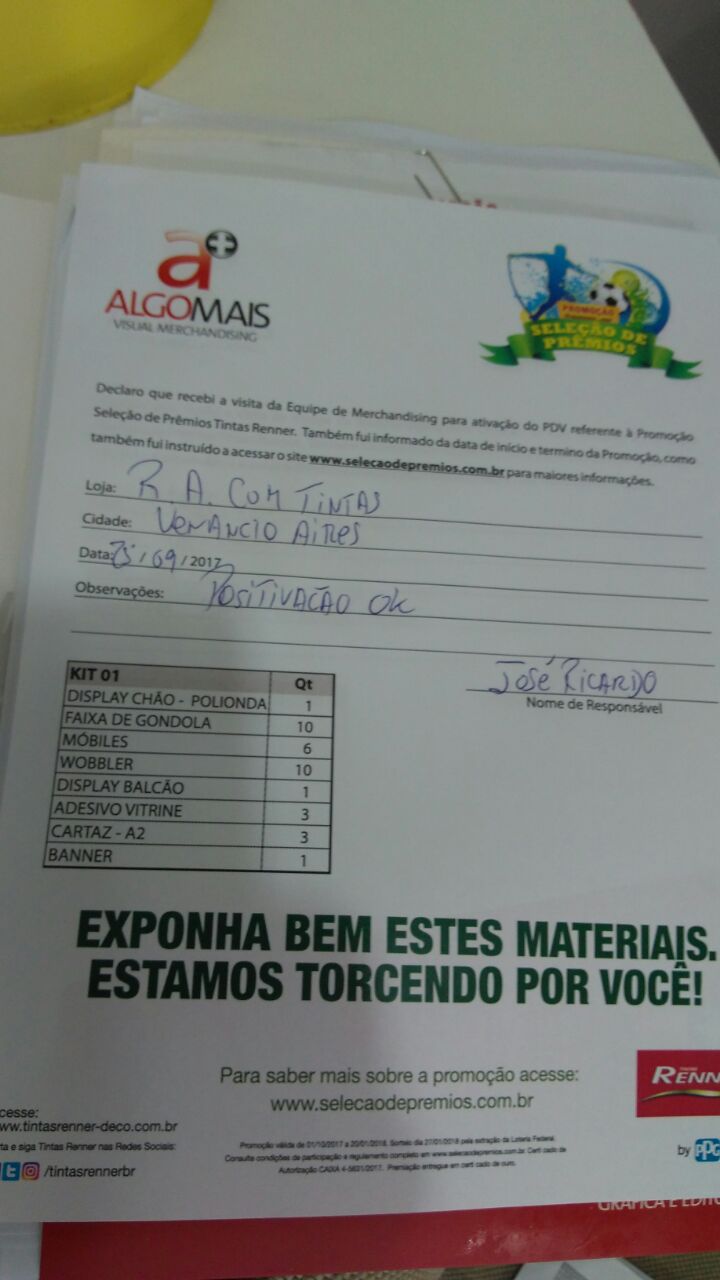 a+
ALGOMAIS
VISUAL MERCHANDISING
PROMOÇÃO
SELEÇÃO DE
PRÊMIOS
Declaro que recebi a visita da Equipe de Merchandising para ativação do PDV referente à Promoção
Seleção de Prêmios Tintas Renner. Também fui informado da data de início e termino da Promoção, como
também fui instruído a acessar o site www.selecaodepremios.com.br para maiores informações.
Loja: R. A. COM TINTAS
Cidade: VENANCIO AIRES
Data: 25/09/2017
Observações: POSITIVAÇÃO OK
JOSÉ RICARDO
Nome de Responsável
KIT 01 Qt
DISPLAY CHÃO - POLIONDA 1
FAIXA DE GONDOLA 10
MÓBILES 6
WOBBLER 10
DISPLAY BALCÃO 1
ADESIVO VITRINE 3
CARTAZ - A2 3
BANNER 1
EXPONHA BEM ESTES MATERIAIS.
ESTAMOS TORCENDO POR VOCÊ!
Para saber mais sobre a promoção acesse:
www.selecaodepremios.com.br
RENN
by PPG
cesse:
ww.tintasrenner-deco.com.br
ta e siga Tintas Renner nas Redes Sociais:
/tintasrennerbr
Promoção válida de 01/10/2017 a 20/01/2018. Sorteio dia 27/01/2018 pela extração da Loteria Federal.
Consulte condições de participação e regulamento completo em www.selecaodepremios.com.br Cert cado de
Autorização CAIXA 4-5631/2017. Premiação entregue em cert cado de ouro.
GRÁFICA E EDITO